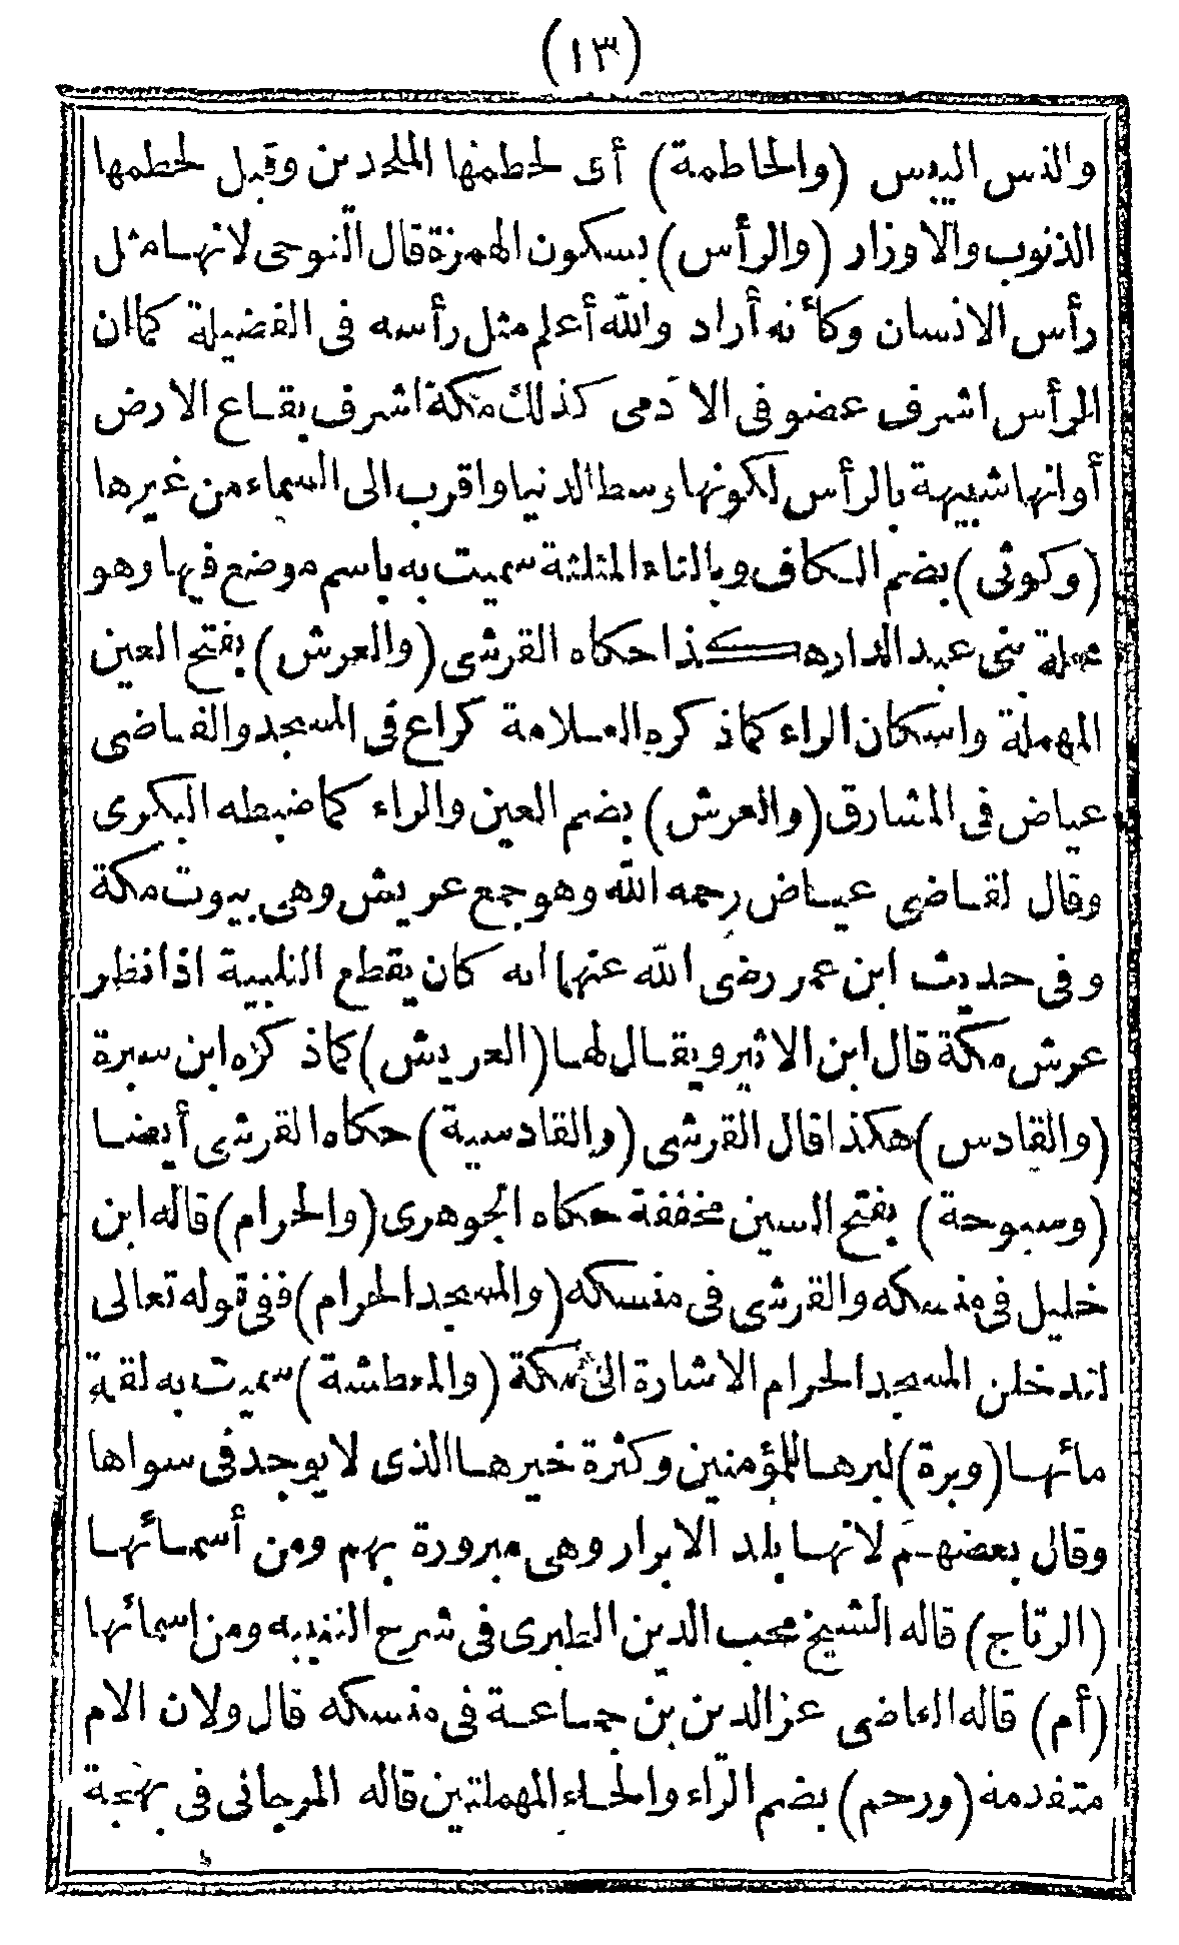 (١٣)
والنس اليبس (والحاطمة) أى لحطمها الملحدين وقيل لحطمها
الذنوب والاوزار (والرأس) بسكون الهمزة قال النوحى لانها مثل
رأس الانسان وكأنه أراد والله أعلم مثل رأسه فى الفضيلة كما ان
الرأس اشرف عضو فى الآدمى كذلك مكة اشرف بقاع الارض
أوانها شبيهة بالرأس لكونها وسط الدنيا واقرب الى السماء من غيرها
(وكوثى) بضم الكاف وبالثاء المثلثة سميت به باسم موضع فيها وهو
محلة بنى عبد الدار هكذا حكاه القرشى (والعرش) بفتح العين
المهملة واسكان الراء كما ذكره العلامة كراع فى المسجد والقاضى
عياض فى المشارق (والعرش) بضم العين والراء كما ضبطه البكرى
وقال لقاضى عياض رحمه الله وهو جمع عريش وهى بيوت مكة
وفى حديث ابن عمر رضى الله عنهما انه كان يقطع التلبية اذا نظر
عرش مكة قال ابن الاثير ويقال لها (العريش) كما ذكره ابن سبرة
(والقادس) هكذا قال القرشى (والقادسية) حكاه القرشى أيضا
(وسبوحة) بفتح السين مخففة حكاه الجوهرى (والحرام) قاله ابن
خليل فى منسكه والقرشى فى منسكه (والمسجد الحرام) ففى قوله تعالى
لتدخلن المسجد الحرام الاشارة الى مكة (والمعطشة) سميت به لقة
مائها (وبرة) لبرها للمؤمنين وكثرة خيرها الذى لا يوجد فى سواها
وقال بعضهم لانها بلد الابرار وهى مبرورة بهم ومن أسمائها
(الرتاج) قاله الشيخ محب الدين الطبرى فى شرح التنبيه ومن اسمائها
(أم) قاله القاضى عز الدين بن جماعة فى منسكه قال ولان الام
متقدمة (ورحم) بضم الراء والحاء المهملتين قاله المرجانى فى بهجة